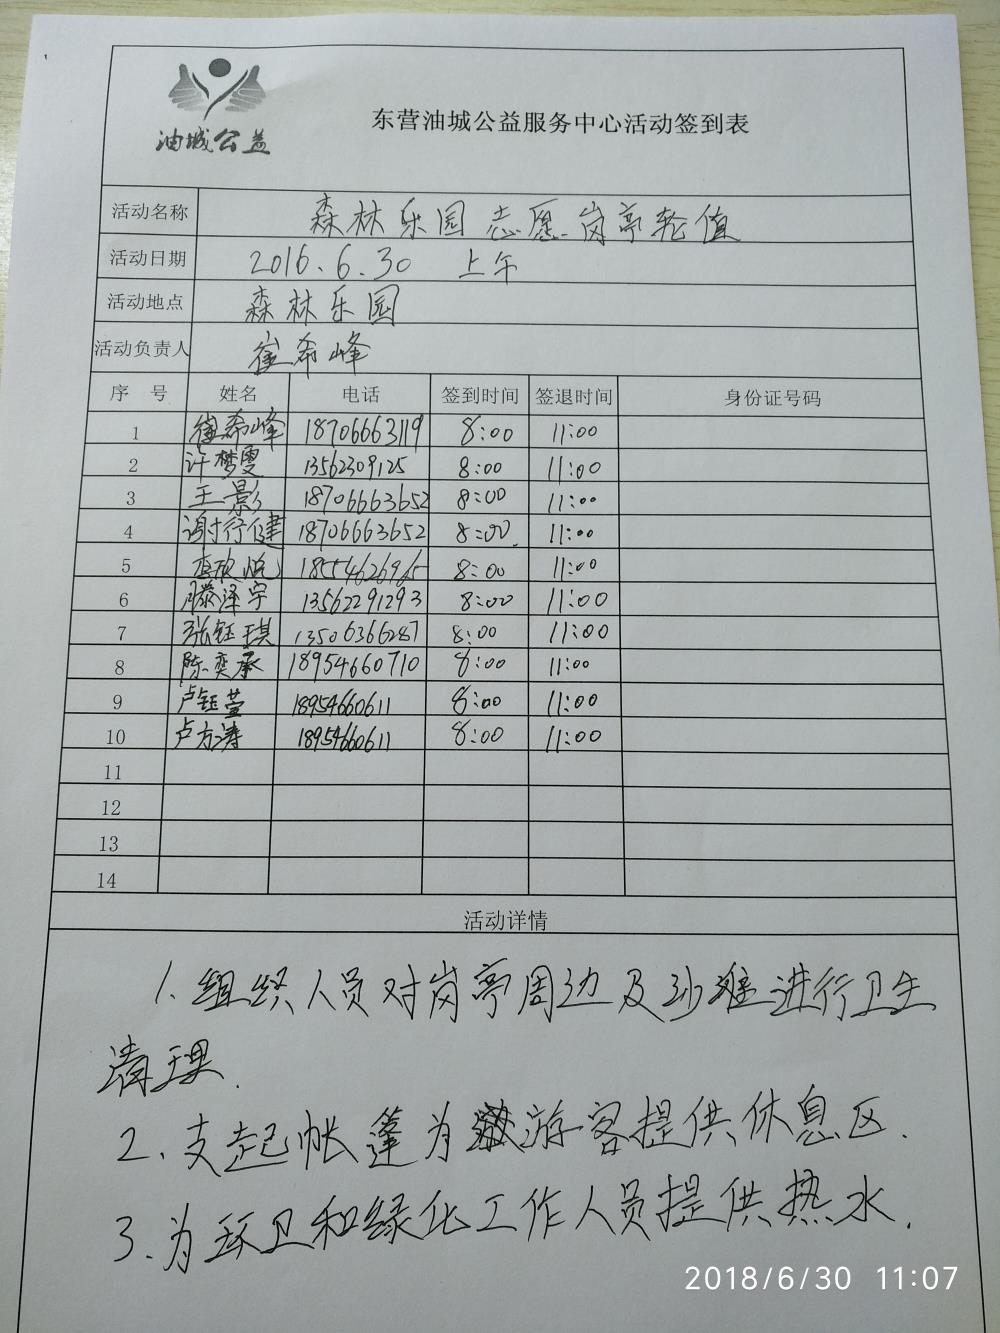 油城公益
东营油城公益服务中心活动签到表
活动名称 森林乐园 志愿岗亭轮值
活动日期 2016.6.30 上午
活动地点 森林乐园
活动负责人 崔希峰
序 号 姓名 电话 签到时间 签退时间 身份证号码
1 崔希峰 18706663119 8:00 11:00
2 许梦雯 13562309125 8:00 11:00
3 王影 18706663652 8:00 11:00
4 谢行健 18706663652 8:00 11:00
5 18554626965 8:00 11:00
6 滕泽宇 13562291293 8:00 11:00
7 张钰琪 13506366287 8:00 11:00
8 陈奕承 18954660710 8:00 11:00
9 卢钰莹 18954660611 8:00 11:00
10 卢方涛 18954660611 8:00 11:00
11
12
13
14
活动详情
1.组织人员对岗亭周边及沙滩进行卫生
清理.
2、支起帐篷为游客提供休息区.
3、为环卫和绿化工作人员提供热水.
2018/6/30 11:07